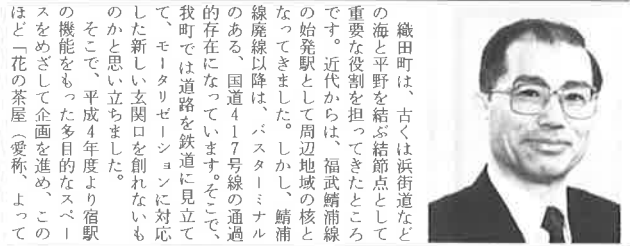 織田町は、古くは浜街道など
の海と平野を結ぶ結節点として
重要な役割を担ってきたところ
です。近代からは、福武鯖浦線
の始発駅として周辺地域の核と
なってきました。しかし、鯖浦
線廃線以降は、バスターミナル
のある、国道417号線の通過
的存在になっています。そこで、
我町では道路を鉄道に見立て
て、モータリゼーションに対応
した新しい玄関口を創れないも
のかと思い立ちました。
そこで、平成4年度より宿駅
の機能をもった多目的なスペー
スをめざして企画を進め、この
ほど「花の茶屋（愛称、よって